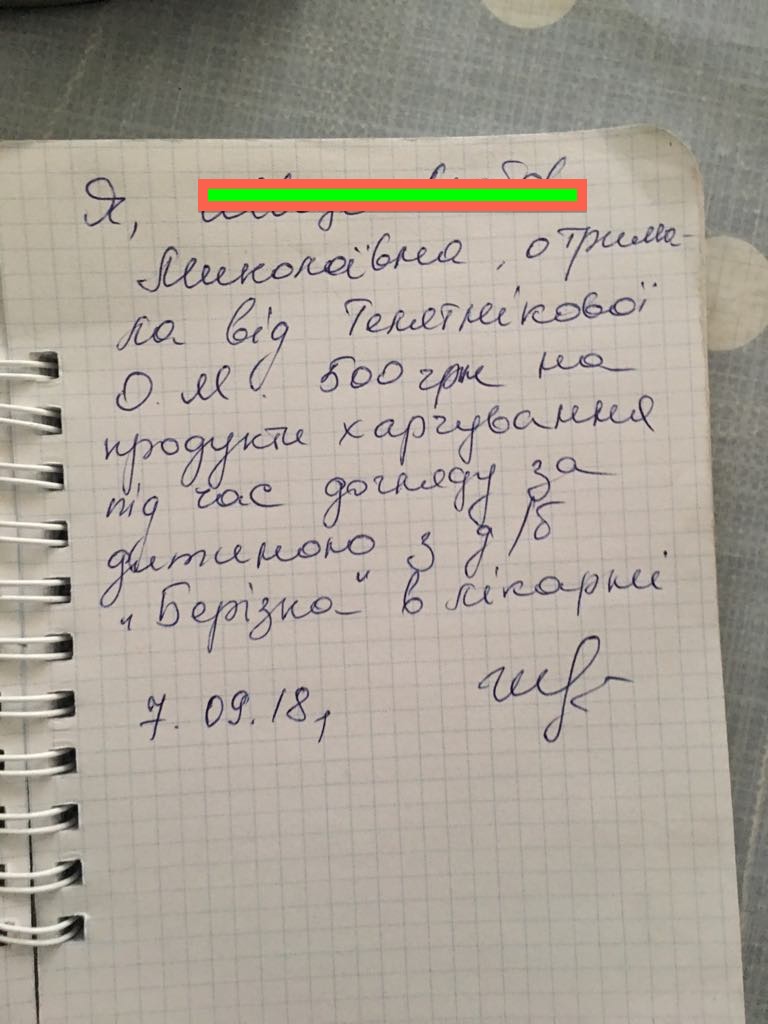 Я,
Миколаївна, отрима-
ла від Телятнікової
О.М. 500 грн на
продукти харчування
під час догляду за
дитиною з д/б
„Берізка" в лікарні
7.09.18,